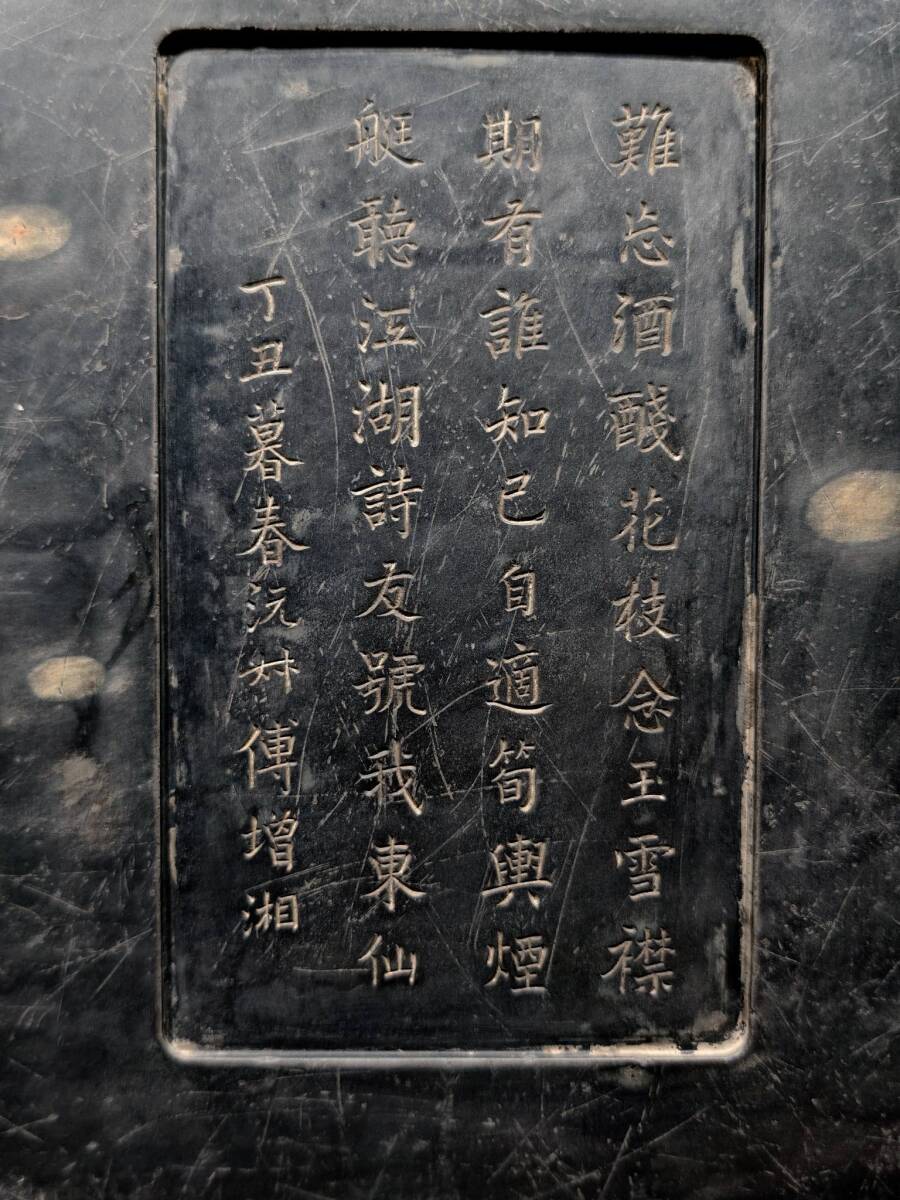 難忘酒醆花枝念玉雪襟
期有誰知己自適筍輿煙
艇聽江湖詩友號我東仙
丁丑暮春沅卅傅增湘